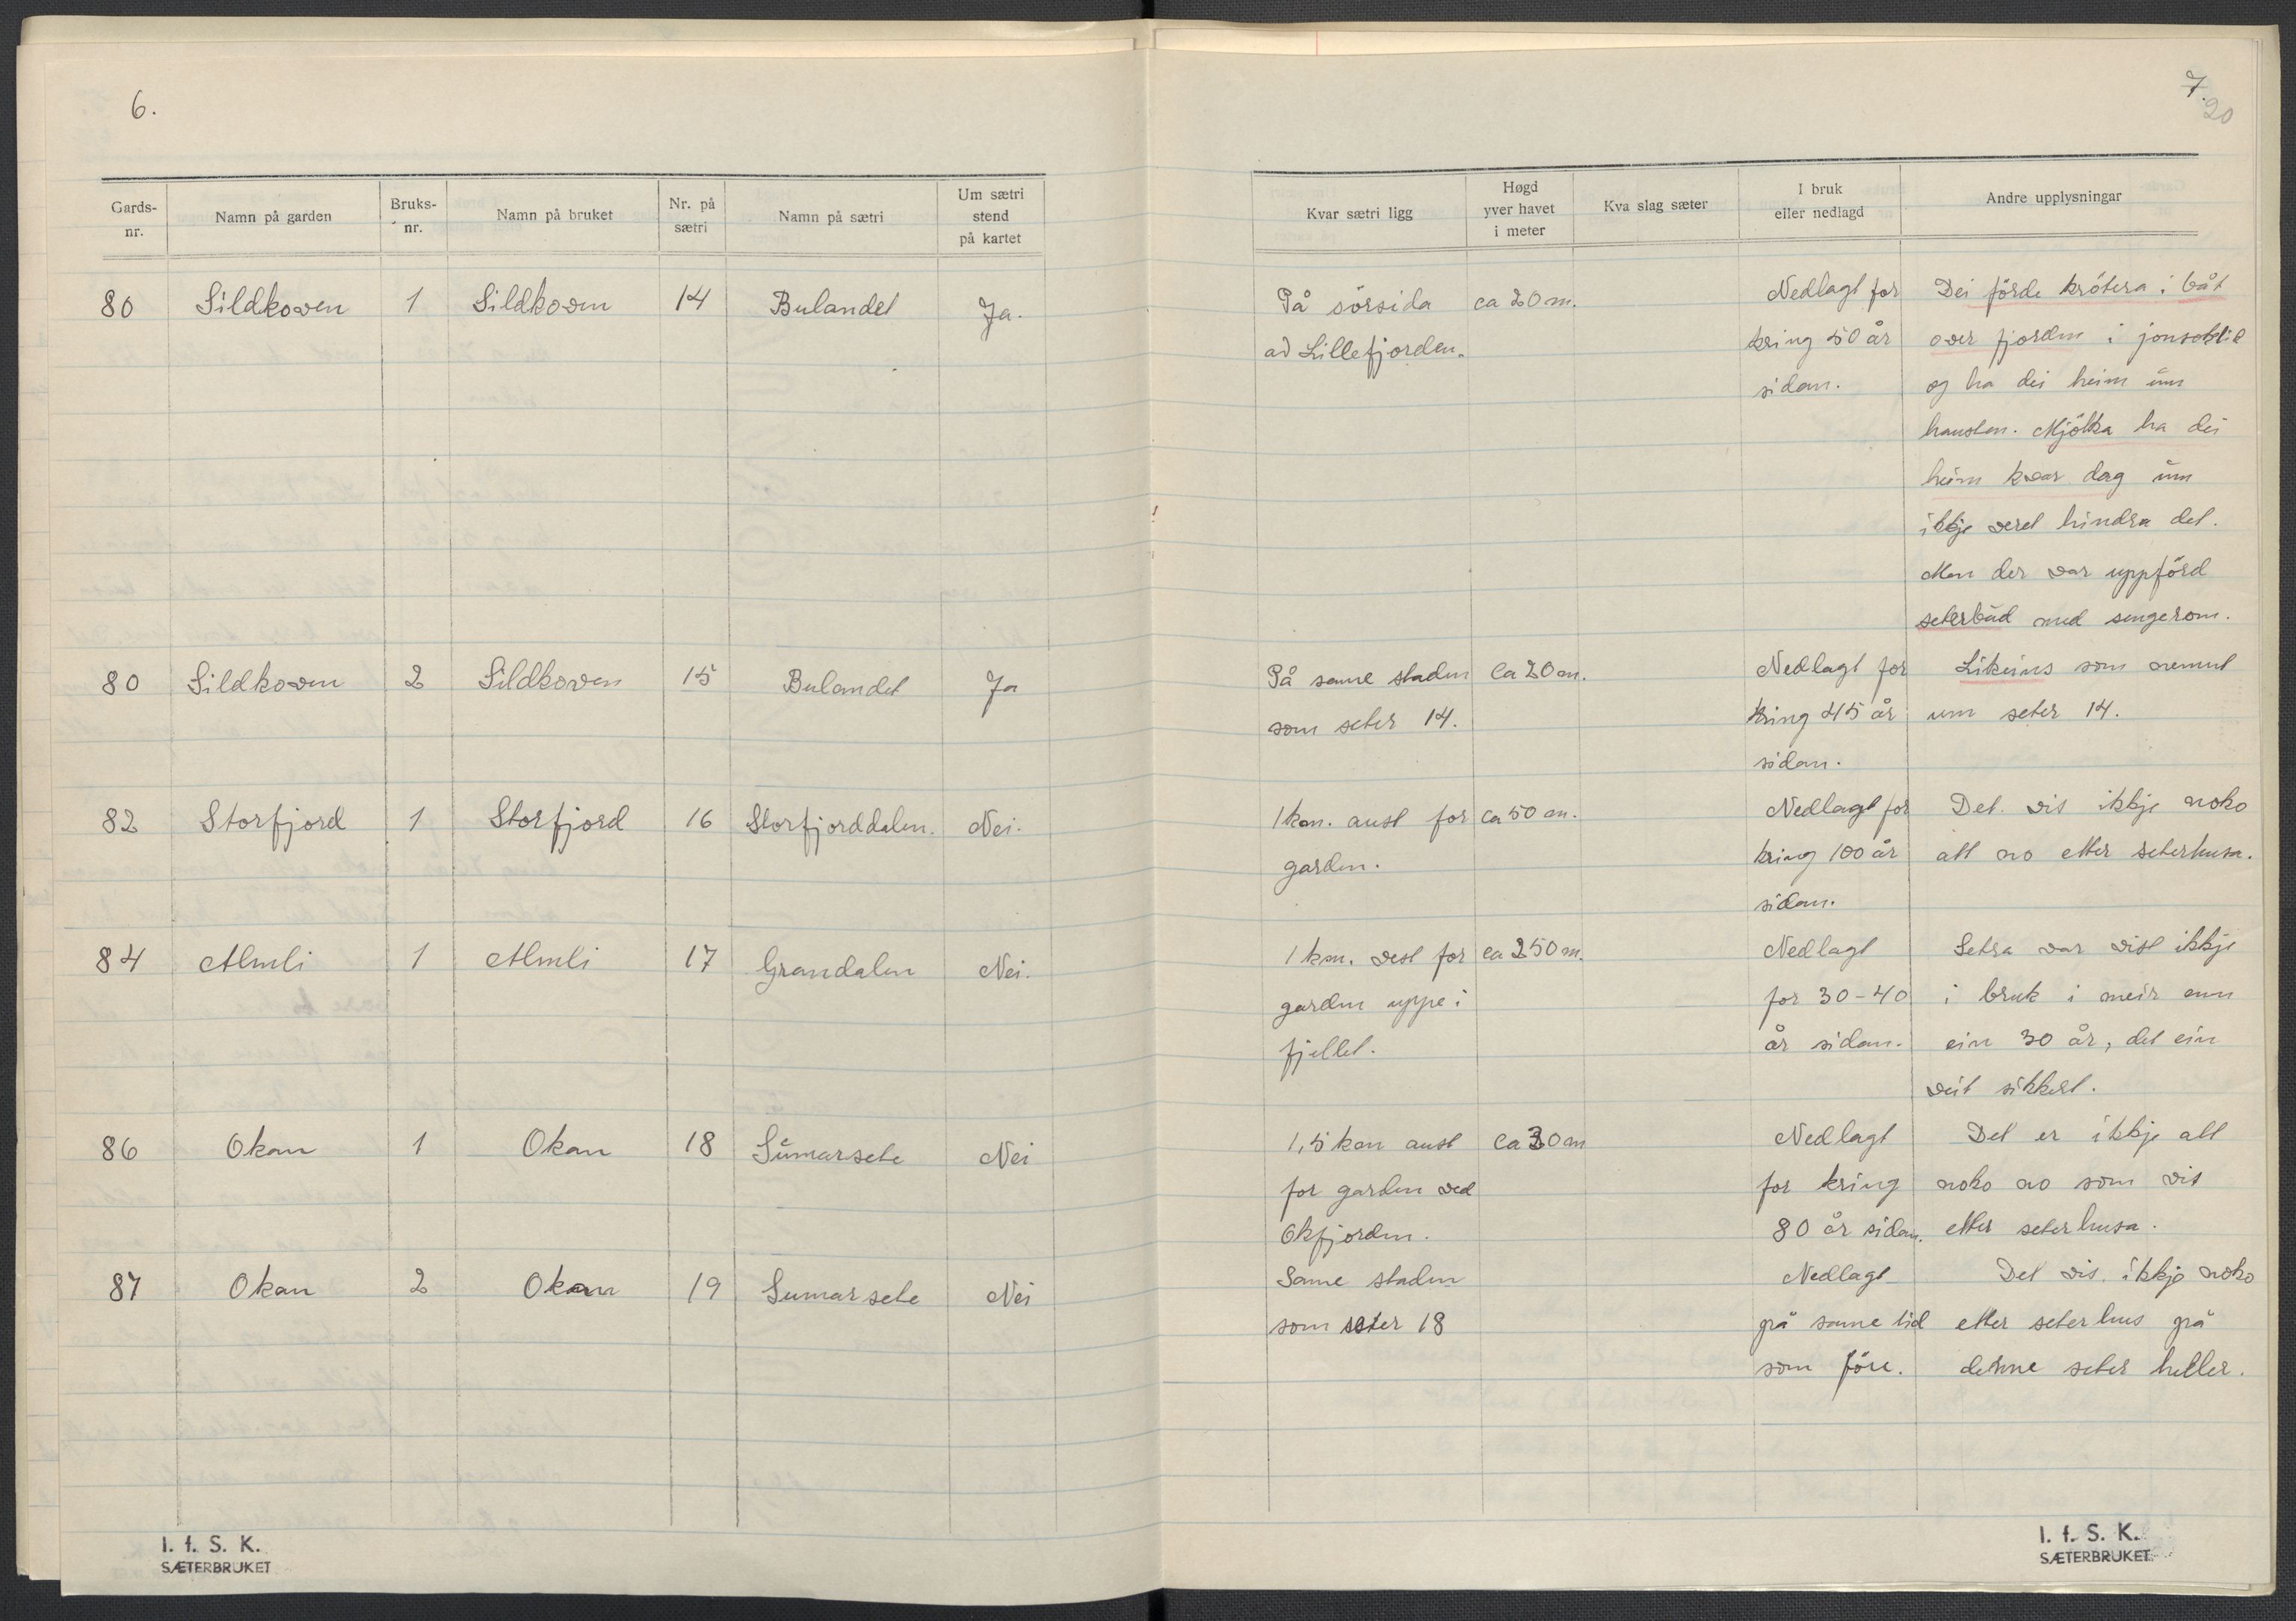 6.
Gards-nr. Namn på garden Bruks-nr. Namn på bruket Nr. på sætri Namn på sætri Um sætri stend på kartet
80 Sildkoven 1 Sildkoven 14 Bulandet Ja.
80 Sildkoven 2 Sildkoven 15 Bulandet Ja
82 Storfjord 1 Storfjord 16 Storfjorddalen. Nei.
84 Almli 1 Almli 17 Grandalen Nei.
86 Okan 1 Okan 18 Sumarsete Nei
87 Okan 2 Okan 19 Sumarsete Nei
I. f. S. K.
SÆTERBRUKET
7.
20
Kvar sætri ligg Høgd yver havet i meter Kva slag sæter I bruk eller nedlagd Andre upplysningar
På sörsida ca 20 m. Nedlagt for Dei förde krötera i båt
av Lillefjorden. kring 50 år over fjorden i
sidan. og ha dei heim um
hausten. Mjölka ha dei
heim kvar dag um
ikkje veret hindra det.
Men der var uppförd
seterbud med sengerom.
På same staden ca 20 m. Nedlagt for Likeins som nemnt
som seter 14. kring 45 år um seter 14.
sidan.
1 km. aust for ca 50 m. Nedlagt for Det vis ikkje noko
garden. kring 100 år att no etter seterhusa.
sidan.
1 km. vest for ca 250 m. Nedlagt Setra var vist ikkje
garden uppe i for 30-40 i bruk i meir enn
fjellet. år sidan. ein 30 år, det ein
veit sikkert.
1,5 km aust ca 30 m Nedlagt Det er ikkje att
for garden ved for kring noko no som vis
Okfjorden. 80 år sidan. etter seterhusa.
Same staden Nedlagt Det vis ikkje noko
som seter 18 på same tid etter seterhus på
som före. denne seter heller.
I. f. S. K.
SÆTERBRUKET